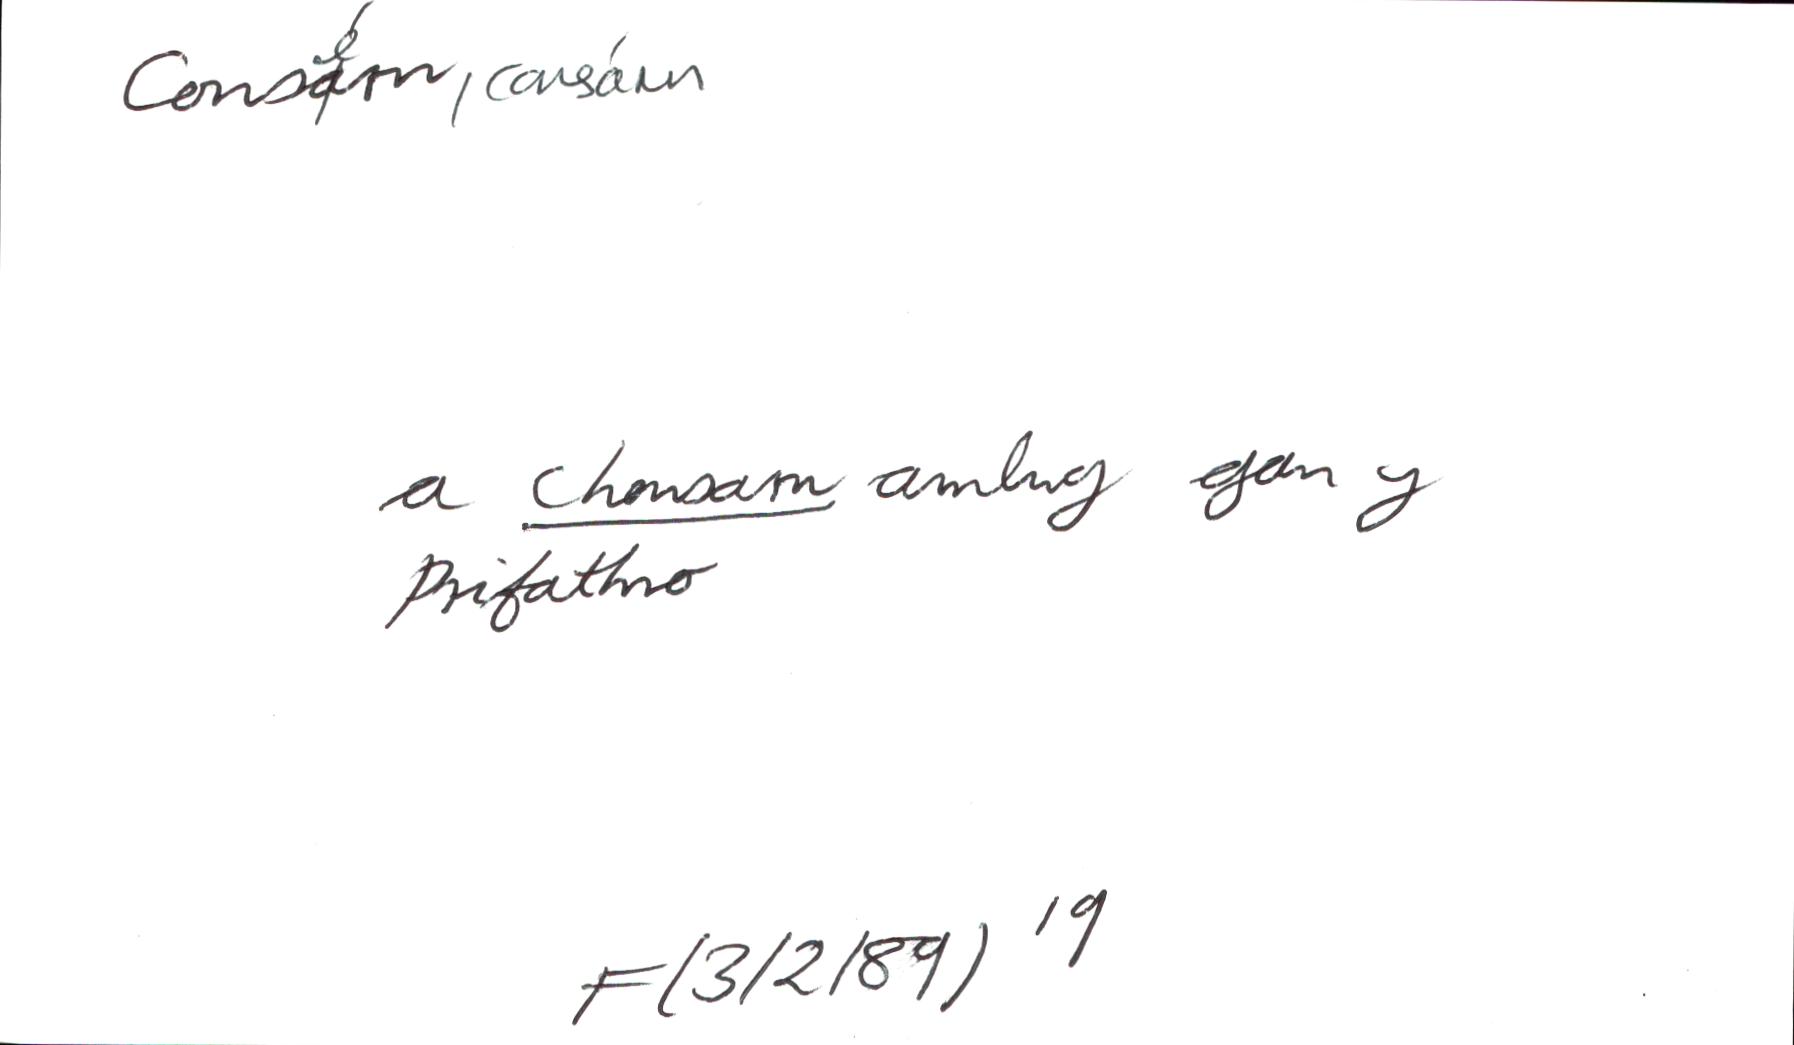 Consérn, consárn
a chonsarn amlwg gan y
Prifathro
F(3/2/89) 19